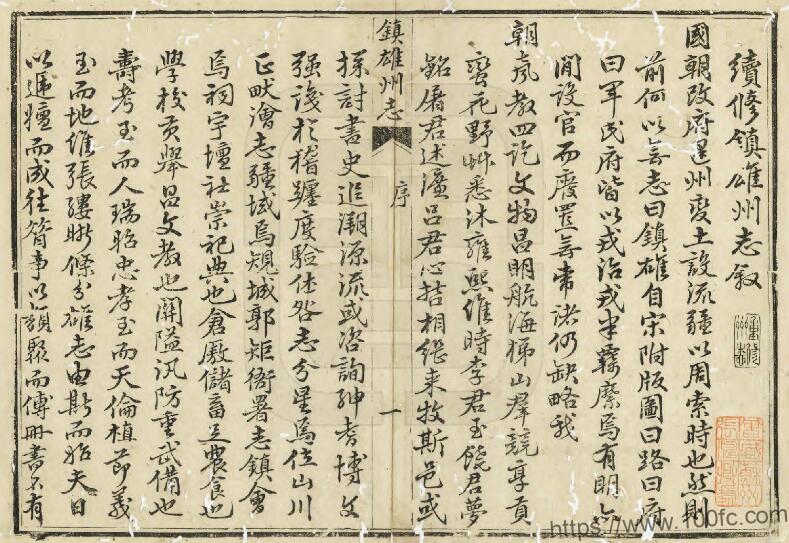 續修鎮雄州志叙
國朝改府還州變土設流疆以周索時也然則
前何以無志曰鎮雄自宋附版圖曰路曰府
曰軍民府皆以戎治戎半羈縻焉有明
間設官而廢置無常諸仍缺略我
朝處教四訖文物昌明航海梯山羣競享貢
蠻花野艸悉沐雍熙維時李君至饒君夢
銘屠君述濂呂君心拮相繼来牧斯邑或
鎮雄州志
序
一
探討書史追溯源流或咨詢紳耆博文
强識於稽躔度驗休咎志分星焉位山川
正畎澮志疆域焉規城郭矩衙署志鎮會
焉祠宇壇社崇祀典也倉廒儲畜足農食也
學校貢舉昌文教也關隘汛防重武備也
壽考至而人瑞昭忠孝至而天倫植節義
至而地維張縷晰條分雄志由斯而昉夫日
以遞嬗而成往籍事以類聚而傳冊書不有
https://www.100fc.com